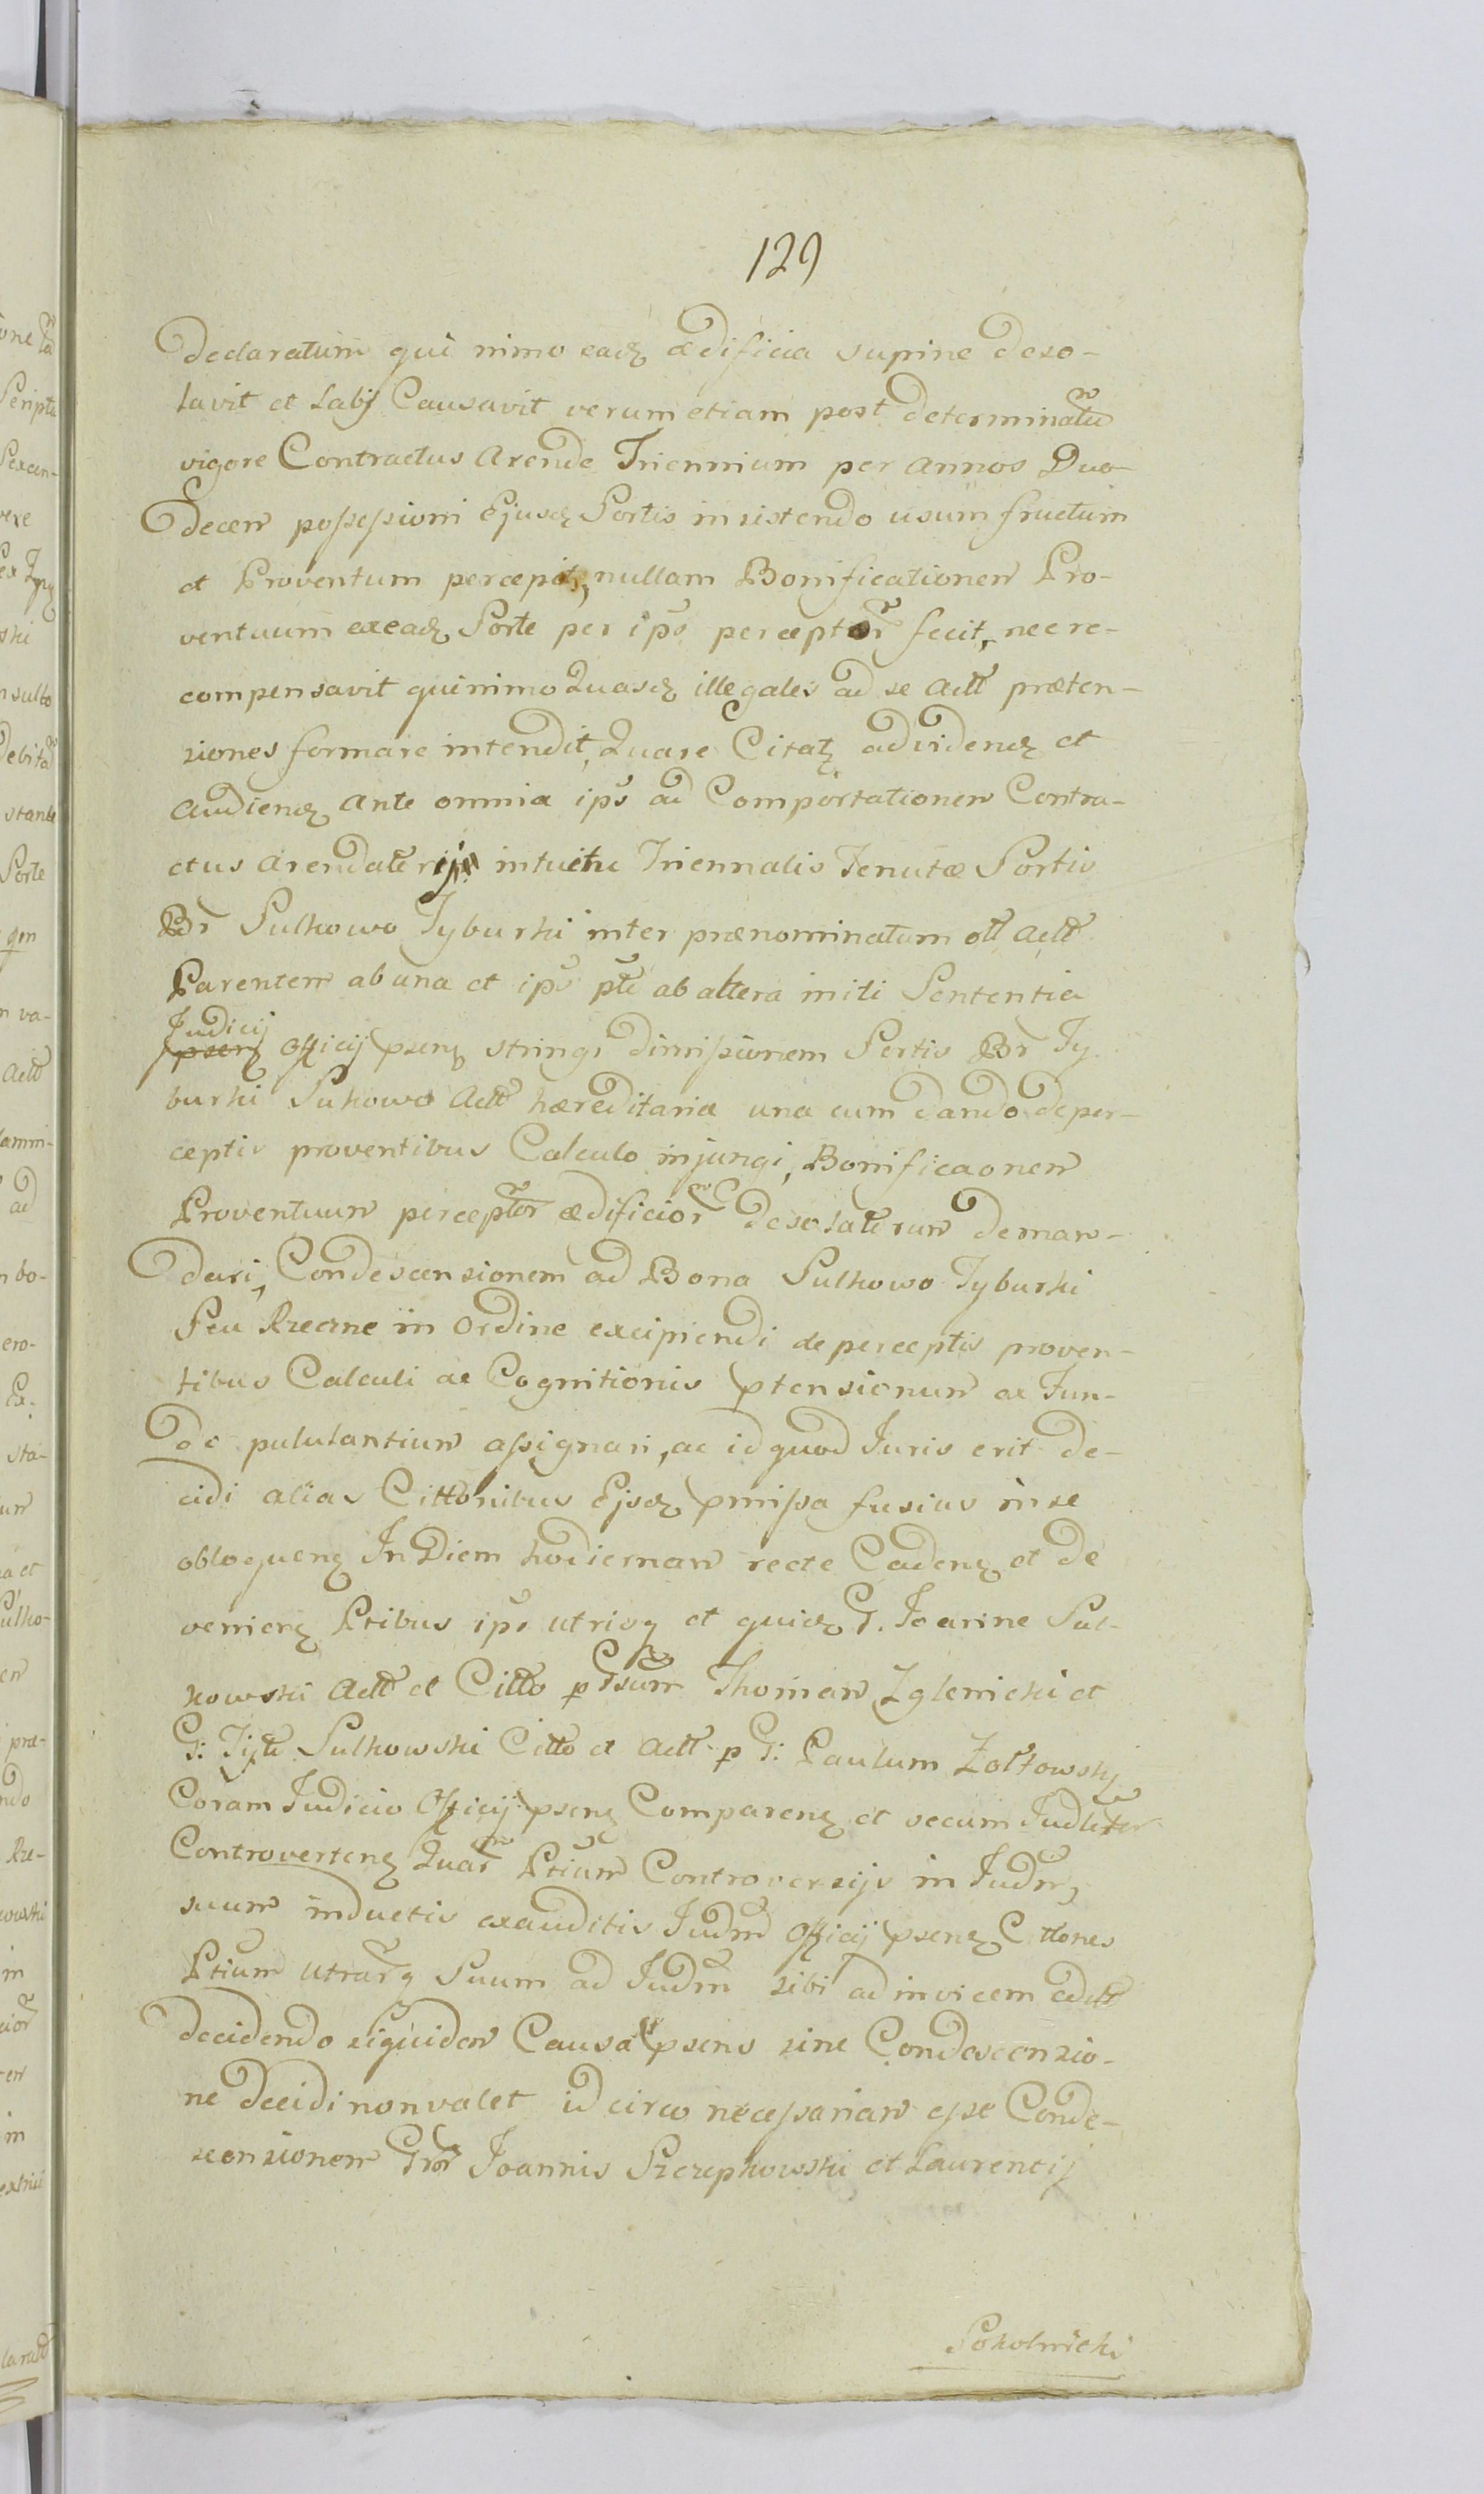 129
Declaratum qui nimo eadz ædificia supine deso-
lavit et Labj Causavit verum etiam post determinatũ
vigore Contractus Arendæ Triennium per annos Duo-
decem possessioni Ejusdz Sortis insistendo usum fructum
et Proventum percepit, nullam Bonificationem Pro-
ventuum ex eadz Sorte per ips perceptor fecit, nec re-
compensavit quinimo Quasdz illegales ad se Actt præten-
siones formare intendit, Quare Citatz ad videnz et
audienz ante omnia ips ad Comportationem Contra-
ctus Arendatorij intuitu Triennalis Tenutæ Sortis
Br Sulkowo Tyburki inter prænominatum olt Actt
Parentem ab una et ips pte ab altera initi Sententia
Judicij
Officij psenz stringi dimissionem Sortis Br Ty-
burki Sukowo Actt hæreditaria una cum dando de per-
ceptis proventibus Calculo injungi, Bonificaonem
Proventuum perceptor ædificior desolatorum deman-
dari, Condescensionem ad Bona Sulkowo Tyburki
Seu Rzeczne in Ordine excipiendi de perceptis proven-
tibus Calculi ac Cognitionis ptensionum ex Fun-
do pululantium assignari, ac id quod Juris erit de-
cidi alias Cittonibus Ejsdz pmissa fusius in se
obloquenz In Diem hodiernam recte Cadenz et de
venienz Ptibus ips utrisq et quidz G. Joanne Sul-
kowski Actt et Citto p Gsum Thomam Zglenicki et
G: Tyte Sulkowski Citto et Actt p G: Paulum Zołtowskj
Coram Judicio Officij psenz Comparenz et secum Judliter
Controvertenz Quar Ptium Controversijs in Judm
suum inductis exauditis Judm Officij psenz Cttones
Ptium utrarq Suum ad Judm sibi ad invicem edtt
decidendo siquidem Causa psens sine Condescensio-
ne decidi non valet idcirco necessariam esse Conde-
scensionem Gror Joannis Szczepkowski et Laurentij
Sokolnicki